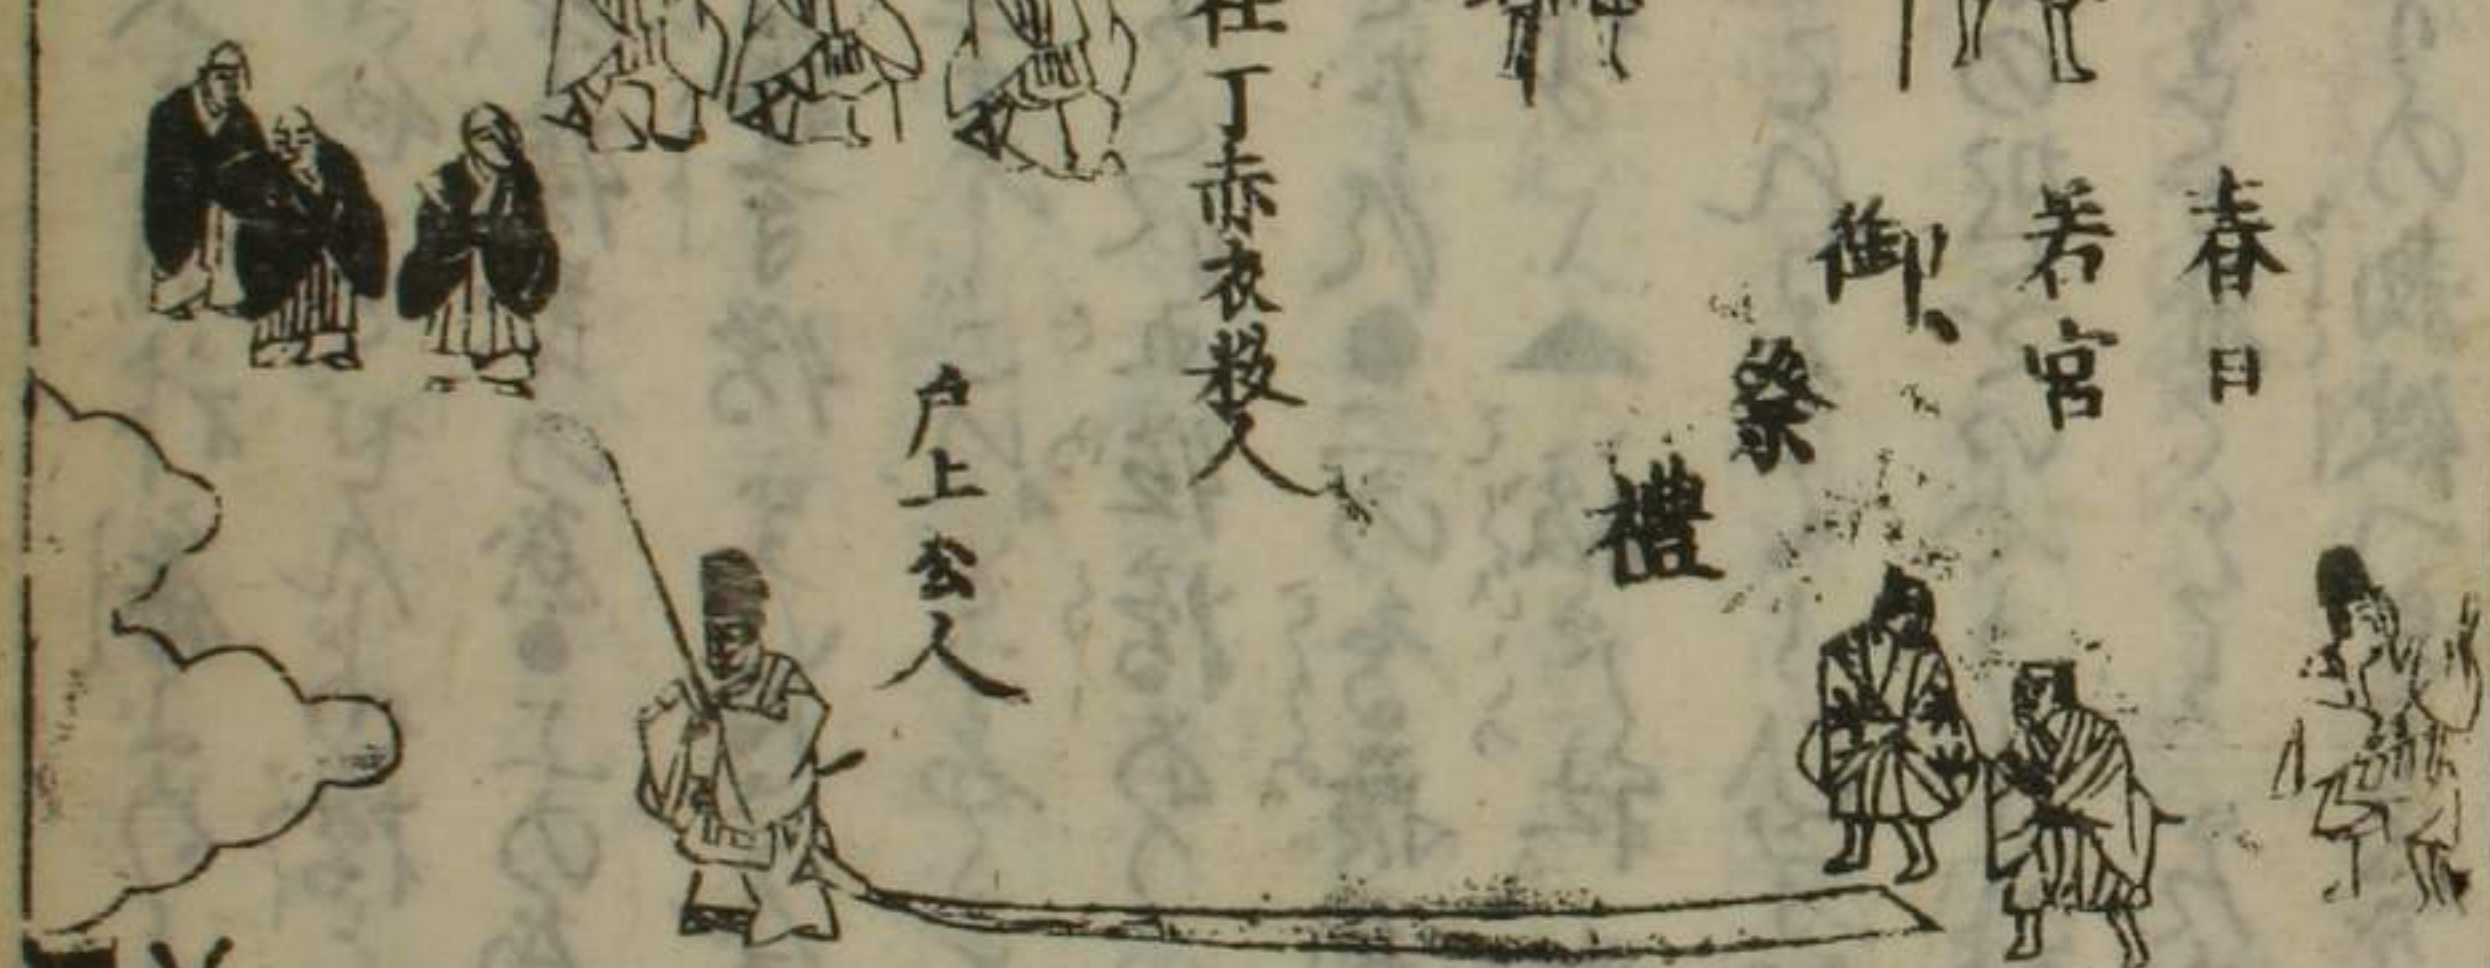 春日
若宮
御
祭
禮
仕丁赤衣役人
戸上公人